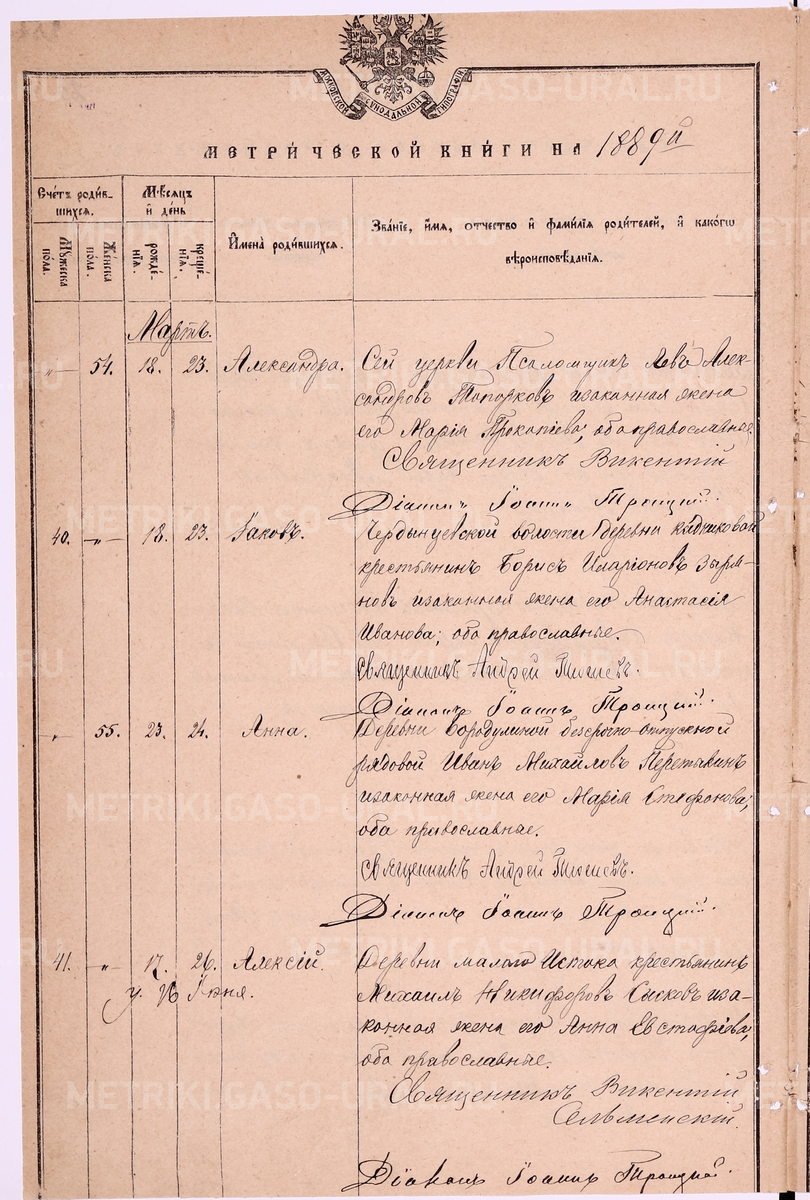 МОСКОВСКОЙ СѴНОДАЛЬНОЙ ТИПОГРАФІИ
МЕТРИ́ЧЕСКОЙ КНИ́ГИ НА 1889й
Сче́тъ роди́вшихся.
Мѣ́сяцъ и҆ де́нь
И҆мена̀ роди́вшихся.
Зва́нїе, и҆́мя, ѻ҆́тчество и҆ фами́лїя роди́телей, и҆ како́гѡ вѣроисповѣ́данїя.
Мꙋ́жеска по́ла.
Же́нска по́ла.
рожде́нїя.
креще́нїя.
Мартъ.
"— 54. 18. 23. Александра. Сей церкви Псаломщикъ Левъ Алек-
сандровъ Топорковъ изаконная жена
его Марія Прокопіева; оба православные.
Священникъ Викентій
Діаконъ Іоаннъ Троицкій.
40. —"— 18. 23. Іаковъ. Чердынцевской волости деревни Кадниковой
крестьянинъ Борисъ Иларіоновъ Зыря-
новъ изаконная жена его Анастасія
Иванова; оба православные.
Священникъ Андрей
Діаконъ Іоаннъ Троицкій.
" 55. 23. 24. Анна. Деревни Бородулиной безсрочно-отпускной
рядовой Иванъ Михайловъ Перетыкинъ
изаконная жена его Марія Стефонова;
оба православные.
Священникъ Андрей
Діаконъ Іоаннъ Троицкій.
41. —"— 17. 26. Алексій. Деревни малаго Истока крестьянинъ
у. 16 Іюня. Михаилъ Никифоровъ Сысковъ иза-
конная жена его Анна Евстафіева;
оба православные.
Священникъ Викентій
Сельменскій.
Діаконъ Іоаннъ Троицкій
METRIKI.GASO-URAL.RU